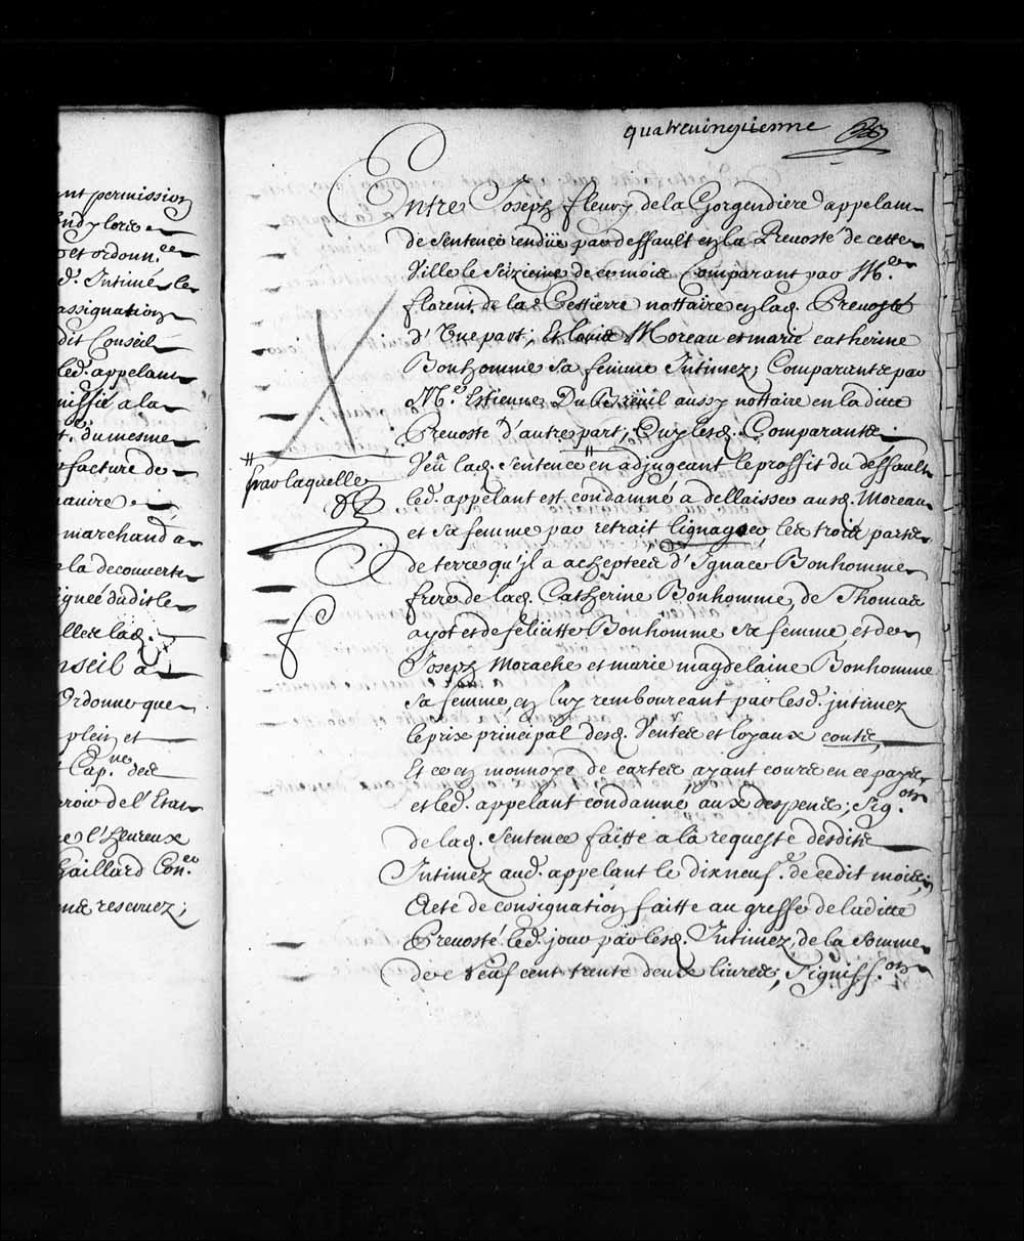 ant permission
et ordonn.ce
d. Intimé le
assignation
dit Conseil
led. appelant
niffié a la
t. du mesme
facture de
nauire
marchand a
la decouverte
ignée dudit le
lad.
nseil a
Ordonne que
plein et
Cap.ne des
roix de l'Estat
l'heureux
Gaillard Con.er
reservez;
quatrevingtiesme
Entre Joseph fleury de la Gorgendiere appelant
de sentence rendüe par deffault en la Prevosté de cette
Ville le seizieme de ce mois Comparant par M.e
florent de la Cettierre nottaire en lad. Prevosté
d'Une part; Et Louis Moreau et marie catherine
Bonhomme sa femme Intimez; Comparants par
M.e Estienne Du Breüil aussy nottaire en la ditte
Prevosté d'autre part; Ouy lesd. Comparants;
Veu lad. sentence # en adjugeant le proffit du deffault
led. appelant est condamné a dellaisser ausd. Moreau
et sa femme par retrait lignager les trois parts
de terre qu'il a acheptées d'Ignace Bonhomme
frere de lad. Catherine Bonhomme, de Thomas
ayot et de féliatte Bonhomme sa femme, et de
Joseph Morache et marie magdelaine Bonhomme
sa femme, en luy rembourcant par lesd. jntimez
le prix principal desd. Ventes et loyaux couts,
Et ce en monnoye de cartes ayant cours en ce pays
et led. appelant condamné aux despens; sig.on
de lad. sentence faitte a la requeste desdits
Intimez aud. appelant le dixneuf.e de cedit mois;
Acte de consignation faitte au greffe de laditte
Prevosté led. jour par lesd. Intimez, de la somme
de Neuf cent trente deux livres; Signiff.on
#
par laquelle